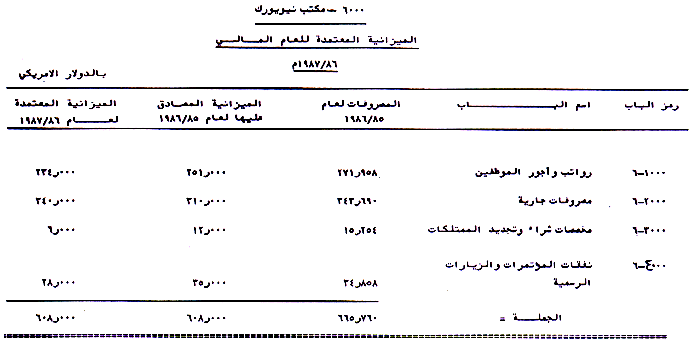 ٦٠٠٠ - مكتب نيويورك
الميزانية المعتمدة للعام المـــالـــي
١٩٨٧/٨٦م
بالدولار الامريكي
رمز الباب اسم البـــــــــاب المصروفات لعام ١٩٨٦/٨٥ الميزانية المصادق عليها لعام ١٩٨٦/٨٥ الميزانية المعتمدة لعـــام ١٩٨٧/٨٦
٦-١٠٠٠ رواتب وأجور الموظفين ٢٧١ر٩٥٨ ٢٥١ر٠٠٠ ٢٣٤ر٠٠٠
٦-٢٠٠٠ مصروفات جارية ٣٤٣ر٦٩٠ ٣١٠ر٠٠٠ ٣٤٠ر٠٠٠
٦-٣٠٠٠ مخصصات شراء وتجديد الممتلكات ١٥ر٢٥٤ ١٢ر٠٠٠ ٦ر٠٠٠
٦-٤٠٠٠ نفقات المؤتمرات والزيارات
الرسمية ٣٤ر٨٥٨ ٣٥ر٠٠٠ ٢٨ر٠٠٠
الجملـــة = ٦٦٥ر٧٦٠ ٦٠٨ر٠٠٠ ٦٠٨ر٠٠٠